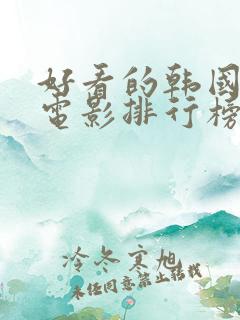 好看的韩國
電影排行榜
冷冬寒旭
未经同意禁止转载